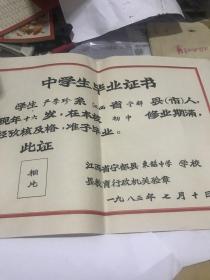 中学生毕业证书
学生 严学珍 系 江西 省 宁都 县(市)人,
现年十六 岁,在本校 初中 修业期满,
经考核及格,准予毕业。
此证
相片
江西省宁都县 东韶中学 学校
县教育行政机关验章
一九八三年 七月 十日